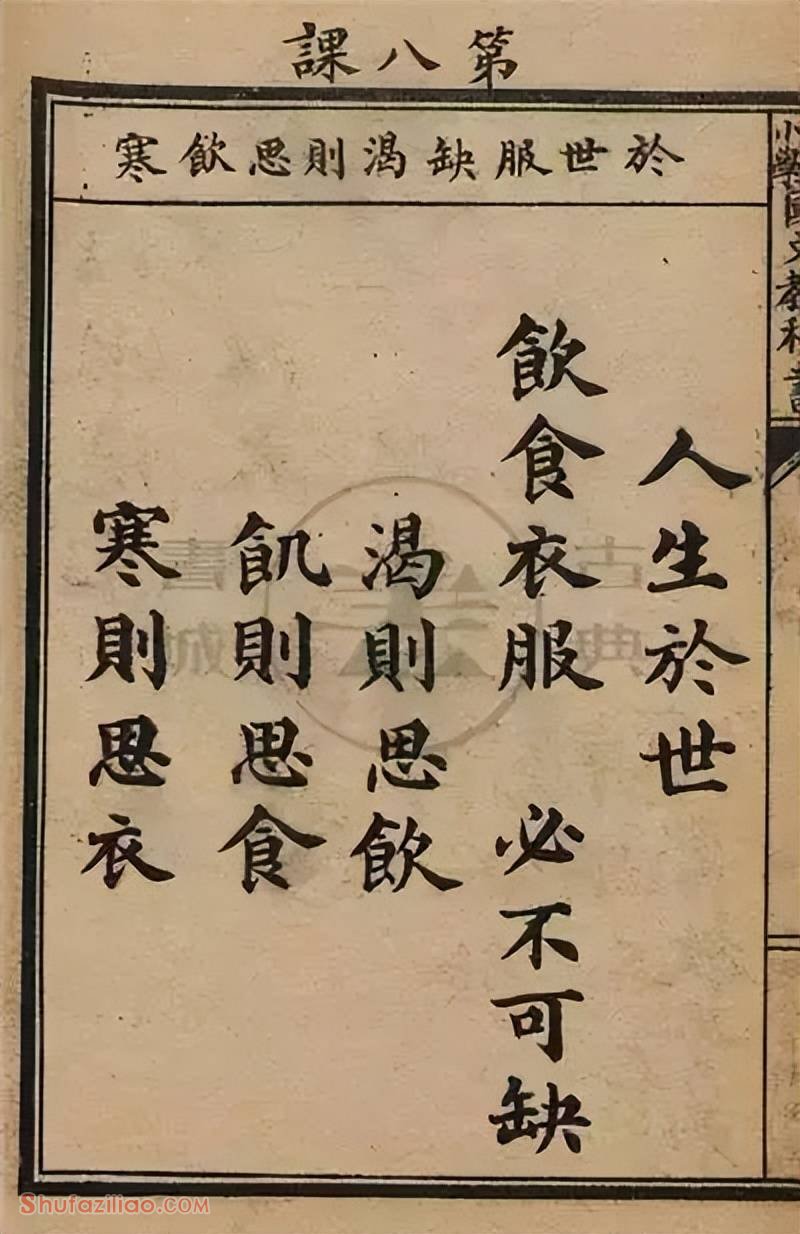 第八課
於世服缺渴則思飲寒
人生於世
飲食衣服 必不可缺
渴則思飲
飢則思食
寒則思衣
小學國文教科書
古典書城
Shufaziliao.com